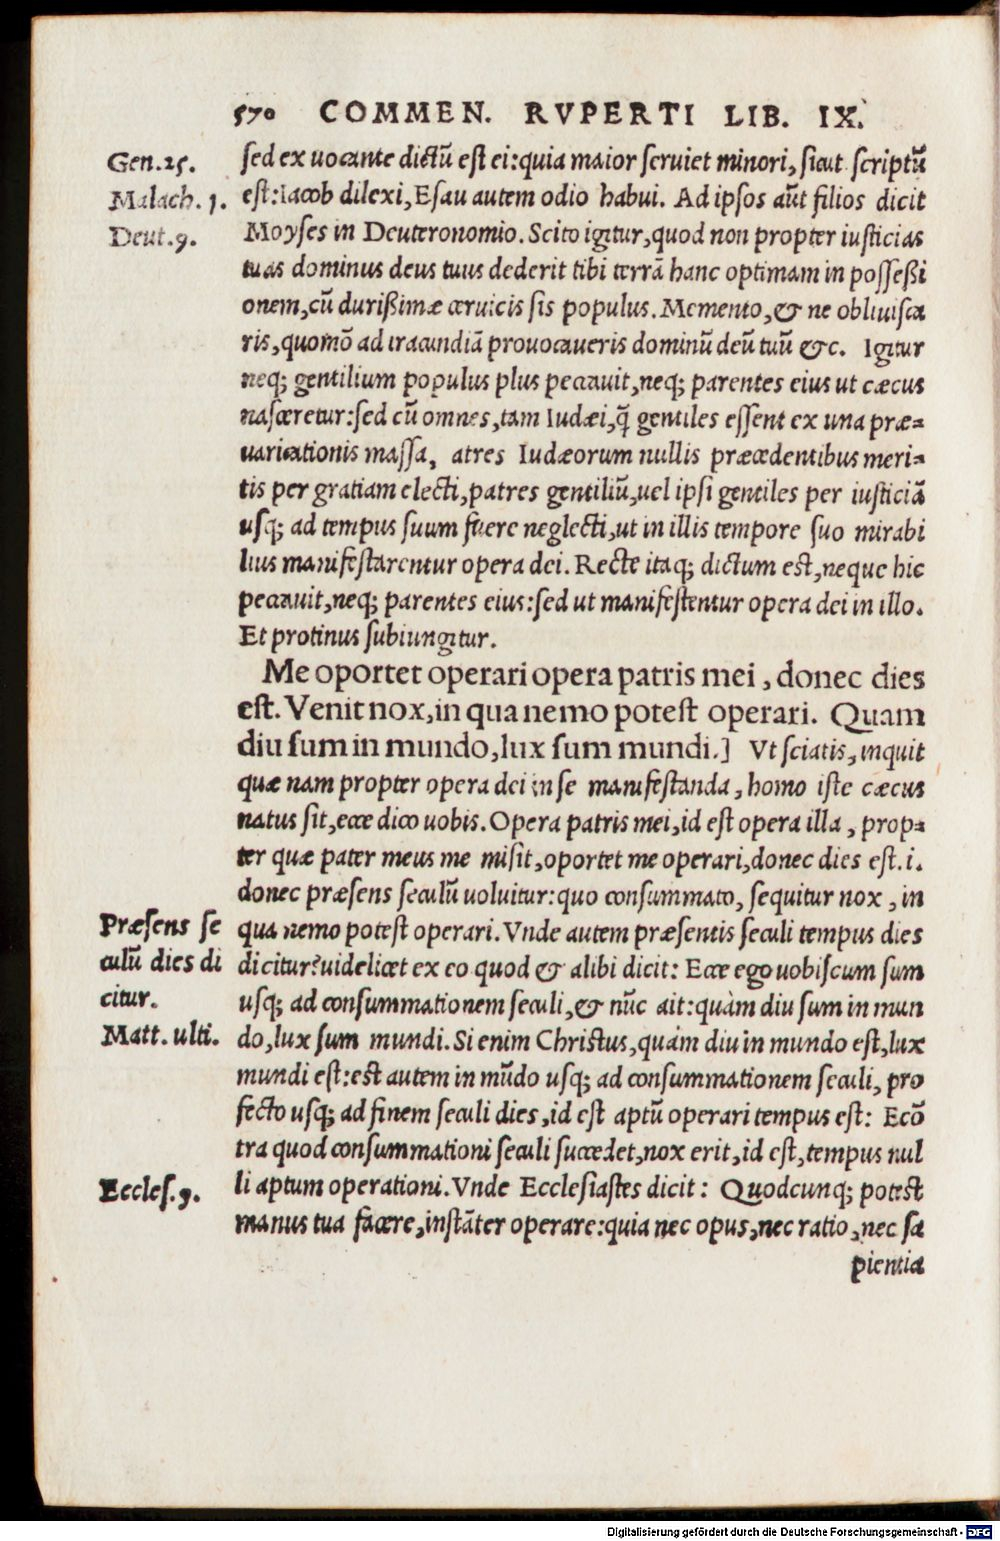 570 COMMEN. RVPERTI LIB. IX.
Gen. 25.
Malach. 1.
Deut. 9.
sed ex uocante dictũ est ei: quia maior seruiet minori, sicut scriptũ
est: Iacob dilexi, Esau autem odio habui. Ad ipsos aũt filios dicit
Moyses in Deuteronomio. Scito igitur, quod non propter iusticias
tuas dominus deus tuus dederit tibi terrã hanc optimam in possessi
onem, cũ durissimæ ceruicis sis populus. Memento, & ne obliuisca
ris, quomõ ad iracundiã prouocaueris dominũ deũ tuũ &c. Igitur
neq; gentilium populus plus peccauit, neq; parentes eius ut cæcus
nasceretur: sed cũ omnes, tam Iudæi, q̃ gentiles essent ex una præ=
uaricationis massa, atres Iudæorum nullis præcedentibus meri=
tis per gratiam electi, patres gentiliũ, uel ipsi gentiles per iusticiã
usq; ad tempus suum fuere neglecti, ut in illis tempore suo mirabi
lius manifestarentur opera dei. Recte itaq; dictum est, neque hic
peccauit, neq; parentes eius: sed ut manifestentur opera dei in illo.
Et protinus subiungitur.
Me oportet operari opera patris mei, donec dies
est. Venit nox, in qua nemo potest operari. Quam
diu sum in mundo, lux sum mundi.] Vt sciatis, inquit
quæ nam propter opera dei in se manifestanda, homo iste cæcus
natus sit, ecce dico uobis. Opera patris mei, id est opera illa, prop=
ter quæ pater meus me misit, oportet me operari, donec dies est. i.
donec præsens seculũ uoluitur: quo consummato, sequitur nox, in
qua nemo potest operari. Vnde autem præsentis seculi tempus dies
dicitur? uidelicet ex eo quod & alibi dicit: Ecce ego uobiscum sum
usq; ad consummationem seculi, & nũc ait: quàm diu sum in mun
do, lux sum mundi. Si enim Christus, quàm diu in mundo est, lux
mundi est: est autem in mũdo usq; ad consummationem seculi, pro
fecto usq; ad finem seculi dies, id est aptũ operari tempus est: Ecõ
tra quod consummationi seculi succedet, nox erit, id est, tempus nul
li aptum operationi. Vnde Ecclesiastes dicit: Quodcunq; potest
manus tua facere, instãter operare: quia nec opus, nec ratio, nec sa
pientia
Præsens se
culũ dies di
citur.
Matt. ulti.
Eccles. 9.
Digitalisierung gefördert durch die Deutsche Forschungsgemeinschaft - DFG